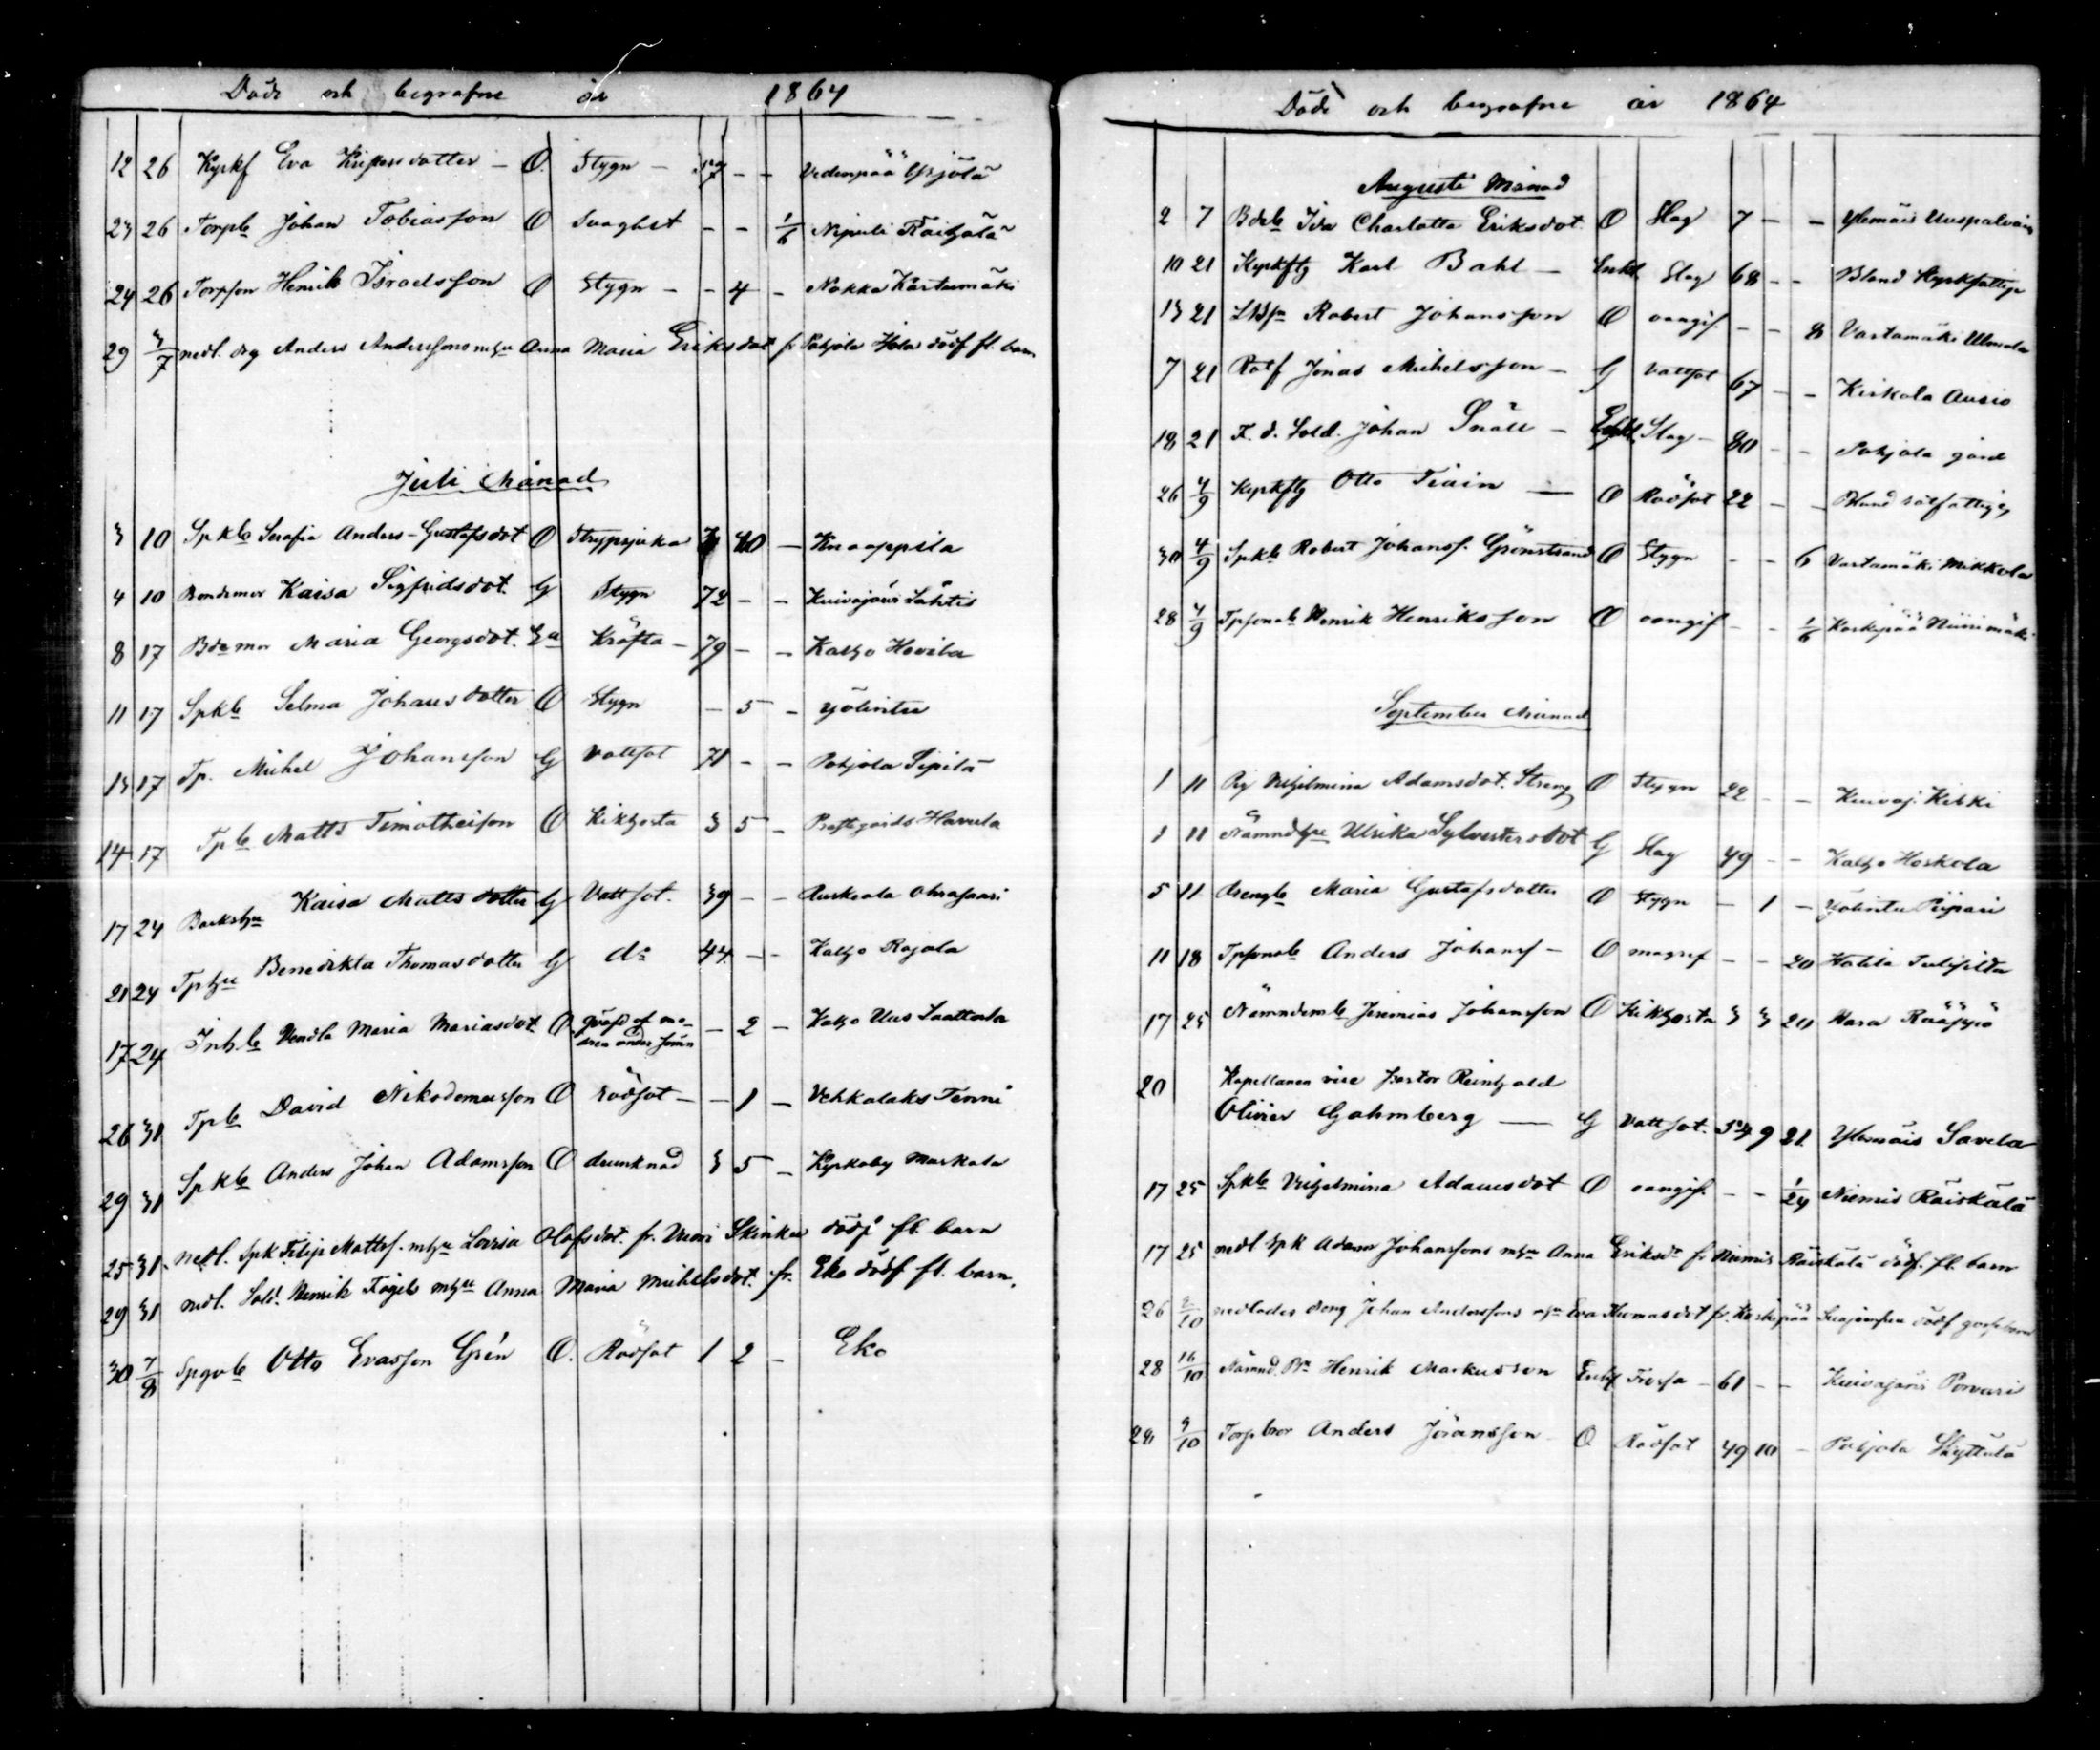 Döde och begrafne år 1864
12 26 Kyrkf Eva datter - O. Stygn - 57 - - Vedenpää Yrjölä
23 26 Torpb Johan Tobiasson O Svaghet - - 1/6 Räihälä
24 26 Torpson Henrik Israelsson O Stygn - - 4 - Nokka
29 3/7 nedl. drg Anders Anderssons mhu Anna Maria Eriksdot fr Pohjola dödf fl. barn
Juli Månad
3 10 Spkb Serafia Anders-Gustafsdot O Strypsjuka 10 - Knaappila
4 10 Bondemor Kaisa Sigfridsdot. G Stygn 72 - - Kuivajärvi Lahtis
8 17 Bdemor Maria Georgsdot. Ea Kräfta - 79 - - Kalho Hovila
11 17 Spkb Selma Johansdotter O Stygn - 5 - Yölintu
13 17 Tp. Michel Johansson G Vattsot 71 - - Pohjola Sipilä
14 17 Tpb Matts Timotheison O Kikhosta 3 5 - Prestgårds
17 24 Backshu Kaisa Matts dotter G Vattsot. 39 - - Auskoala Ohrasaari
21 24 Tphu Benedikta Thomasdotter G do 44. - - Kalho Rajala
17 24 Inhb Vendla Maria Mariasdot O qväfd af mo-
dren under sömn - 2 - Kalho Uus Laattala
26 31 Tpb David Nikodemusson O Rödsot - - 1 - Vehkalaks Tenni
29 31 Spkb Anders Johan Adamsson O drunknad 3 5 - Kyrkoby Markula
25 31 nedl. Spk Filip Mattss. mhu Lovisa Olofsdot. fr. Skinku dödf fl. barn
29 31 nedl. Sold. Henrik Fogels mhu Anna Maria Michelsdot. fr. Eko dödf fl. barn.
30 7/8 Spgob Otto Evasson Grén O. Rödsot 1 2 - Eko
Döde och begrafne år 1864
Augusti Månad
2 7 Bdeb Ida Charlotta Eriksdot. O Slag 7 - - Ylemäis Uuspalvain
10 21 Kyrkftg Karl Bahl - Enkl Slag 68 - - Bland Kyrkfattige
13 21 Robert Johansson O oangif. - - 8 Vartamäki Ullmala
7 21 Rotf Jonas Michelsson - G Vattsot 67 - - Kiskola Ausio
18 21 F. d. Sold. Johan Snäll - Enkl. Slag - 80 - - Pohjola gård
26 4/9 Kyrkftg Otto - O Rödsot 22 - - Bland rotfattige
30 4/9 Spkb Robert Johanss. Grönstrand O Stygn - - 6 Vartamäki Mikkola
28 4/9 Tpsonsb Henrik Henriksson O oangif - - 1/6 Koskipää Niinimäki
September Månad
1 11 Pig Vilhelmina Adamsdot. Streng O Stygn 22 - - Kuivaj. Kikki
1 11 Nämndhu Ulrika Sylvestersdot G Slag 49 - - Kalho Hoskola
5 11 drengb Maria Gustafsdotter O Stygn - 1 - Yölintu Piipari
11 18 Tpsonsb Anders Johanss - O magref - - 20
17 25 Nämndemb Jeremias Johansson O Kikhosta 3 3 20 Wara Rääppiö
20 Kapellanen vice pastor Reinhold
Olivier Gahmberg - G Vattsot. 54 9 21 Ylemäis Savela
17 25 Spkb Vilhelmina Adamsdot O oangif. - - 1/24 Niemis Räiskälä
17 25 nedl Spk Adam Johanssons mhu Anna Eriksdr fr Niemis Räiskälä dödf. fl. barn
26 2/10 nedlades dreng Johan Anderssons mhu Eva Thomasdot fr. Koskipää dödf gossebarn
28 16/10 Nämnd. Bn Henrik Markusson Enkl Frossa - 61 - - Kuivajärvi Porvari
24 9/10 Torpbror Anders Jöransson O Rödsot 49 10 - Pohjola Skyttälä